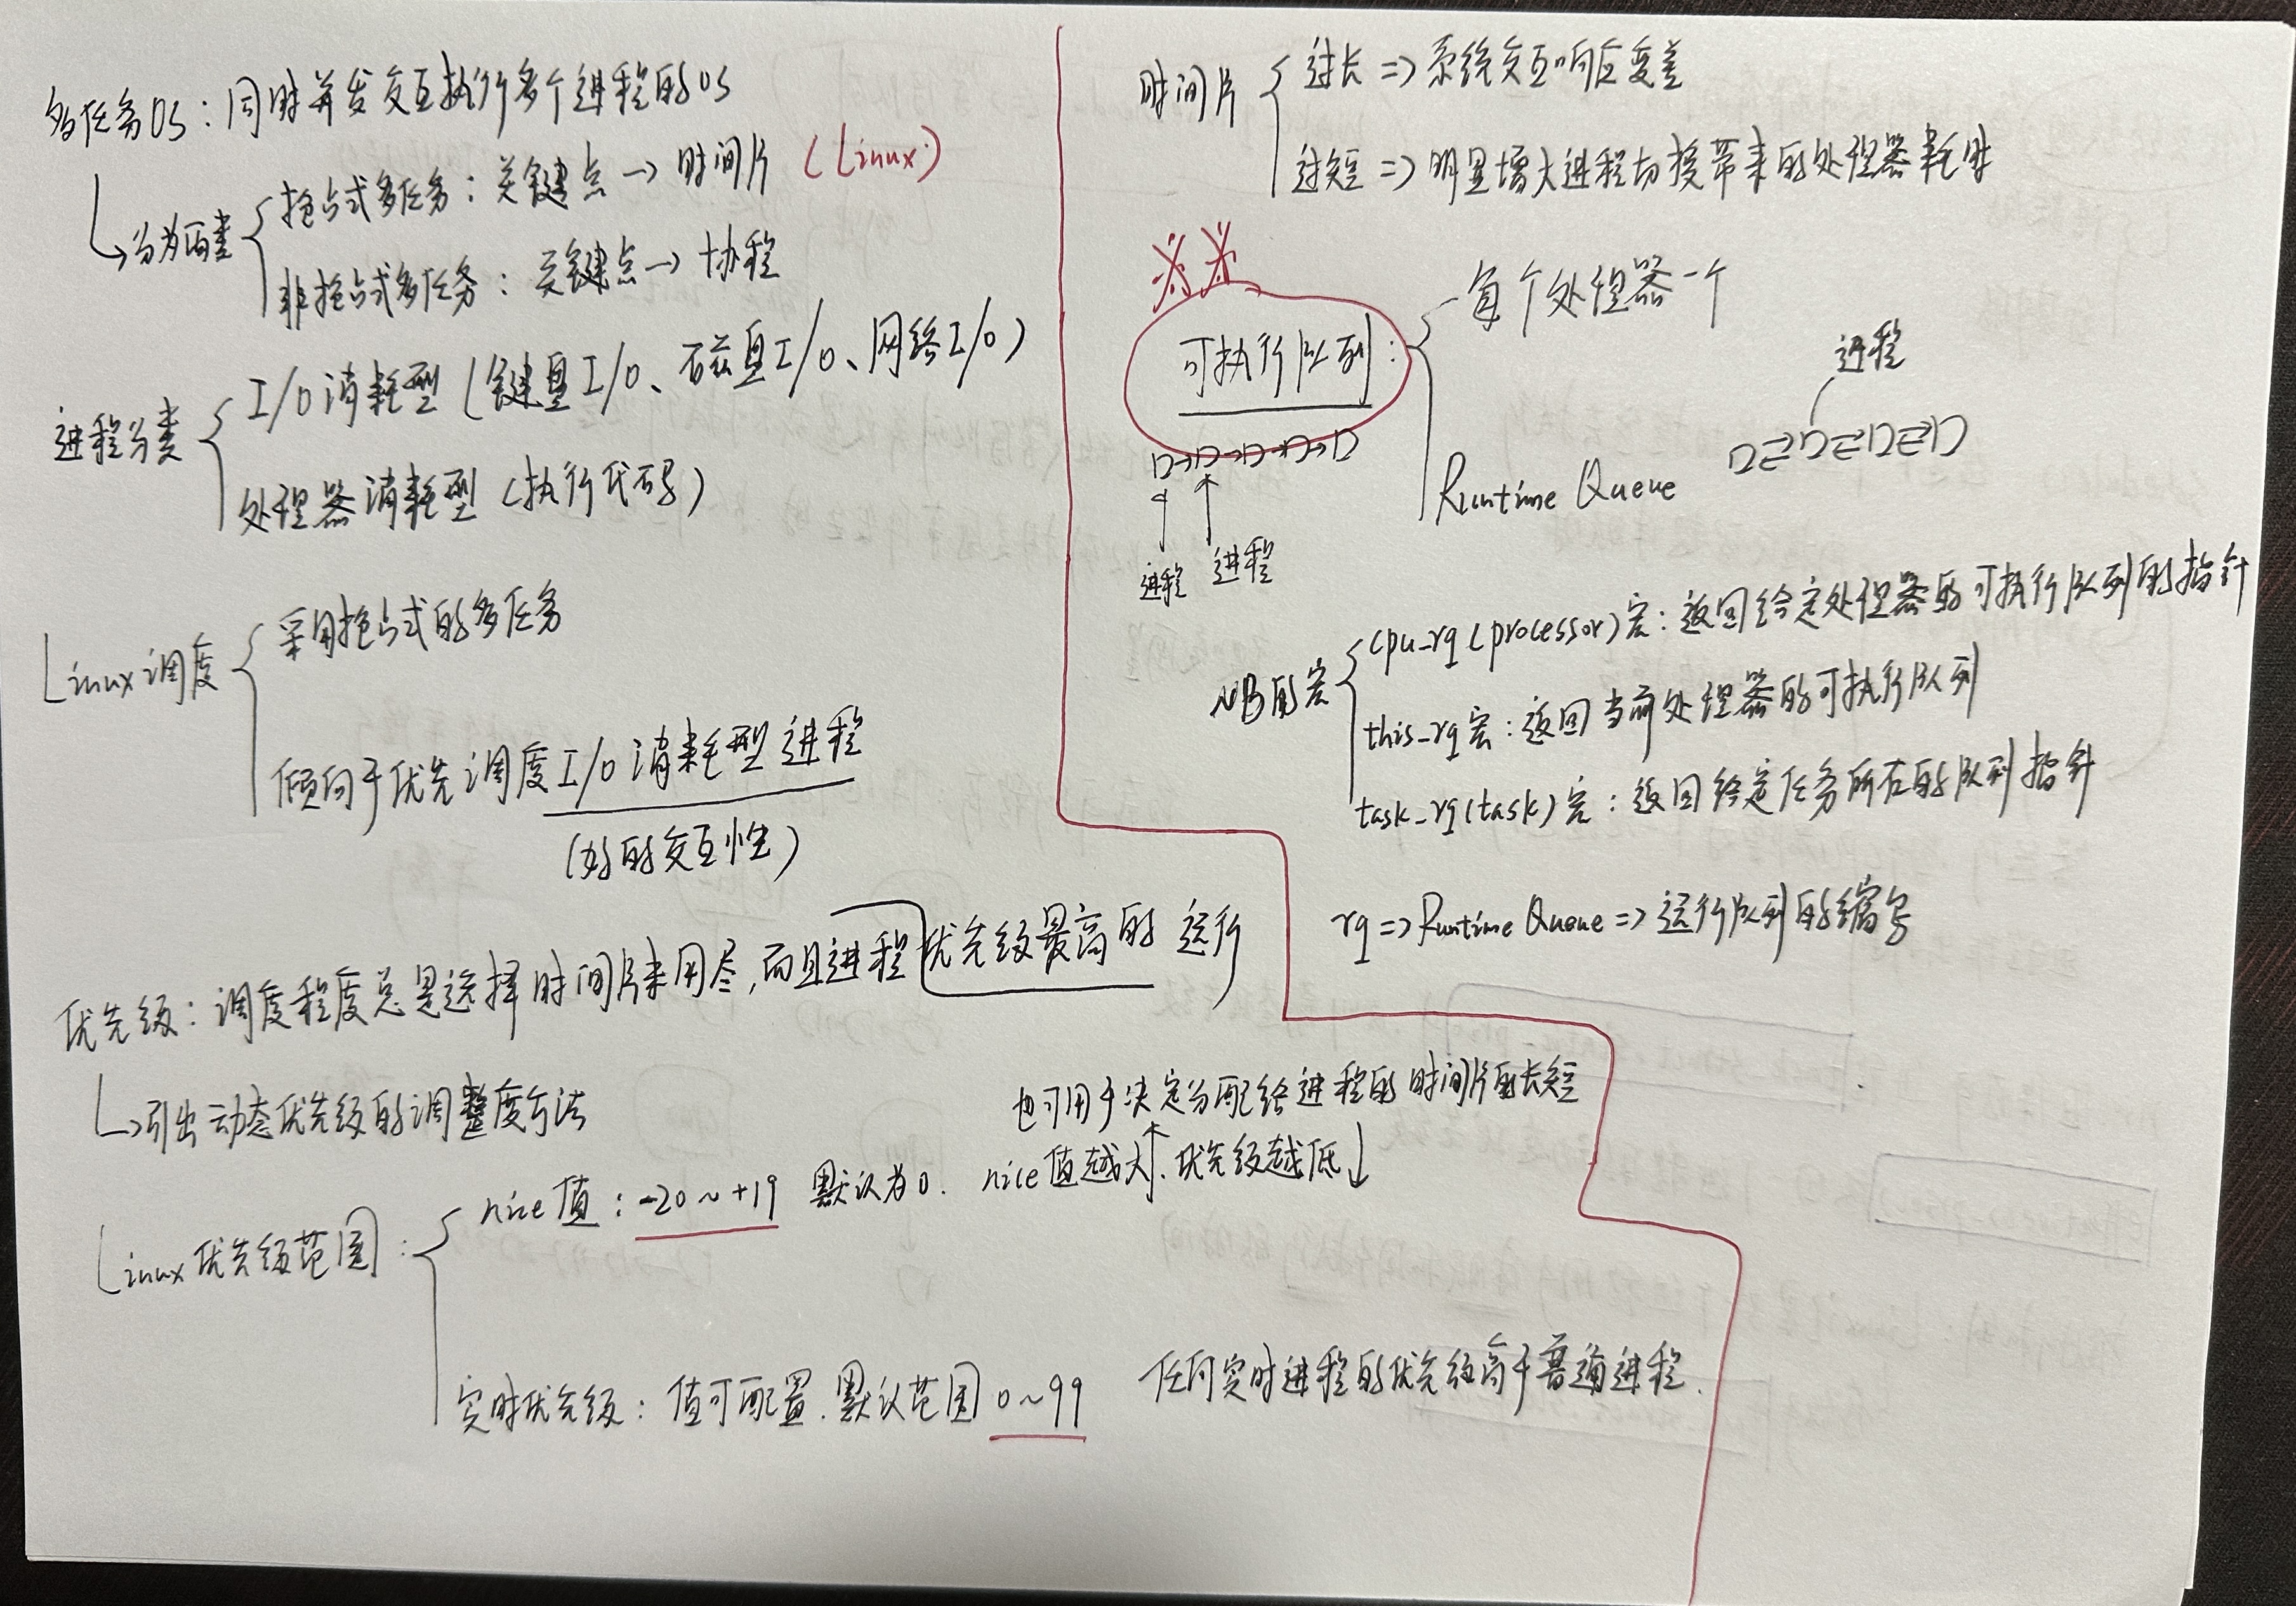 多任务OS：同时并发交互执行多个进程的OS
分为两类
抢占式多任务：关键点→时间片 (Linux)
非抢占式多任务：关键点→协程
进程分类
I/O消耗型（键盘I/O、磁盘I/O、网络I/O）
处理器消耗型（执行代码）
Linux调度
采用抢占式的多任务
倾向于优先调度I/O消耗型进程
（好的交互性）
优先级：调度程度总是选择时间片未用尽，而且进程优先级最高的运行
引出动态优先级的调整度方法
Linux优先级范围：
也可用于决定分配给进程的时间片的长短
nice值：-20～+19 默认为0. nice值越大↑.优先级越低↓
实时优先级：值可配置.默认范围0～99 任何实时进程的优先级高于普通进程.
时间片
过长=>系统交互响应变差
过短=>明显增大进程切换带来的处理器耗时
可执行队列：
每个处理器一个
进程
Runtime Queue
进程 进程
NB的宏
cpu_rq(processor)宏：返回给定处理器的可执行队列的指针
this_rq宏：返回当前处理器的可执行队列
task_rq(task)宏：返回给定任务所在的队列指针
rq=>Runtime Queue=>运行队列的缩写